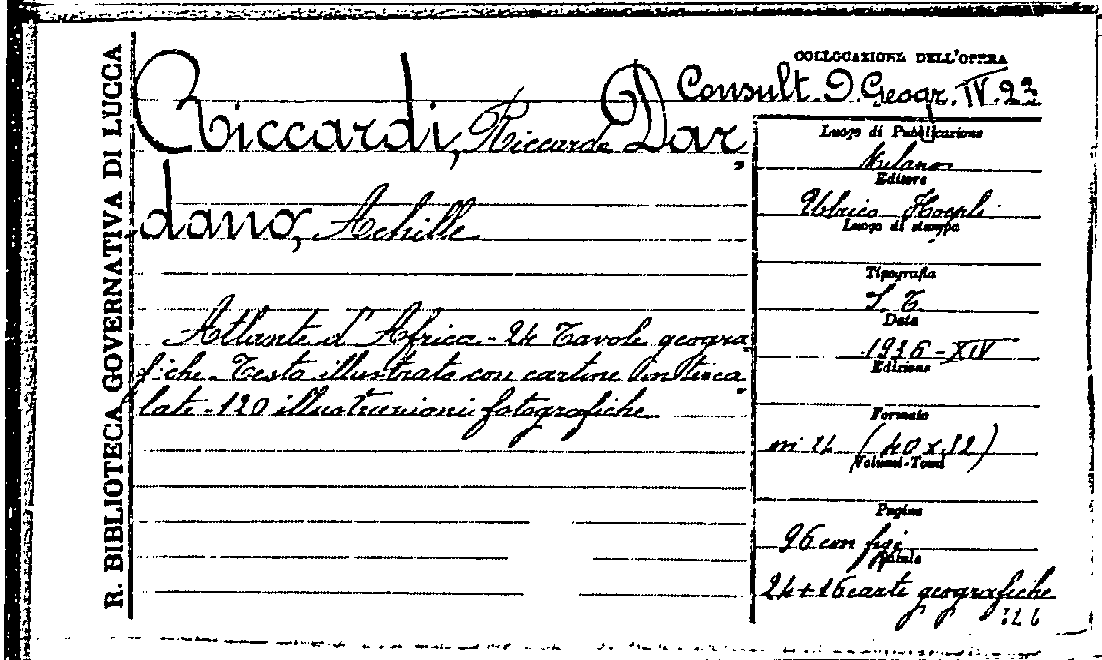 R. BIBLIOTECA GOVERNATIVA DI LUCCA
COLLOCAZIONE DELL'OPERA
Consult. D. Geogr. IV. 23
Riccardi, Riccardo Dar
dano, Achille
Atlante d'Africa - 24 Tavole geogra
fiche - Testo illustrato con cartine interca
late - 120 illustrazioni fotografiche
Luogo di Pubblicazione
Milano
Editore
Ulrico Hoepli
Luogo di stampa
Tipografia
Data
1936 - XIV
Edizione
Formato
(40 x 32)
Volumi-Tomi
Pagine
96 con fig.
Tavole
24 + 16 carte geografiche